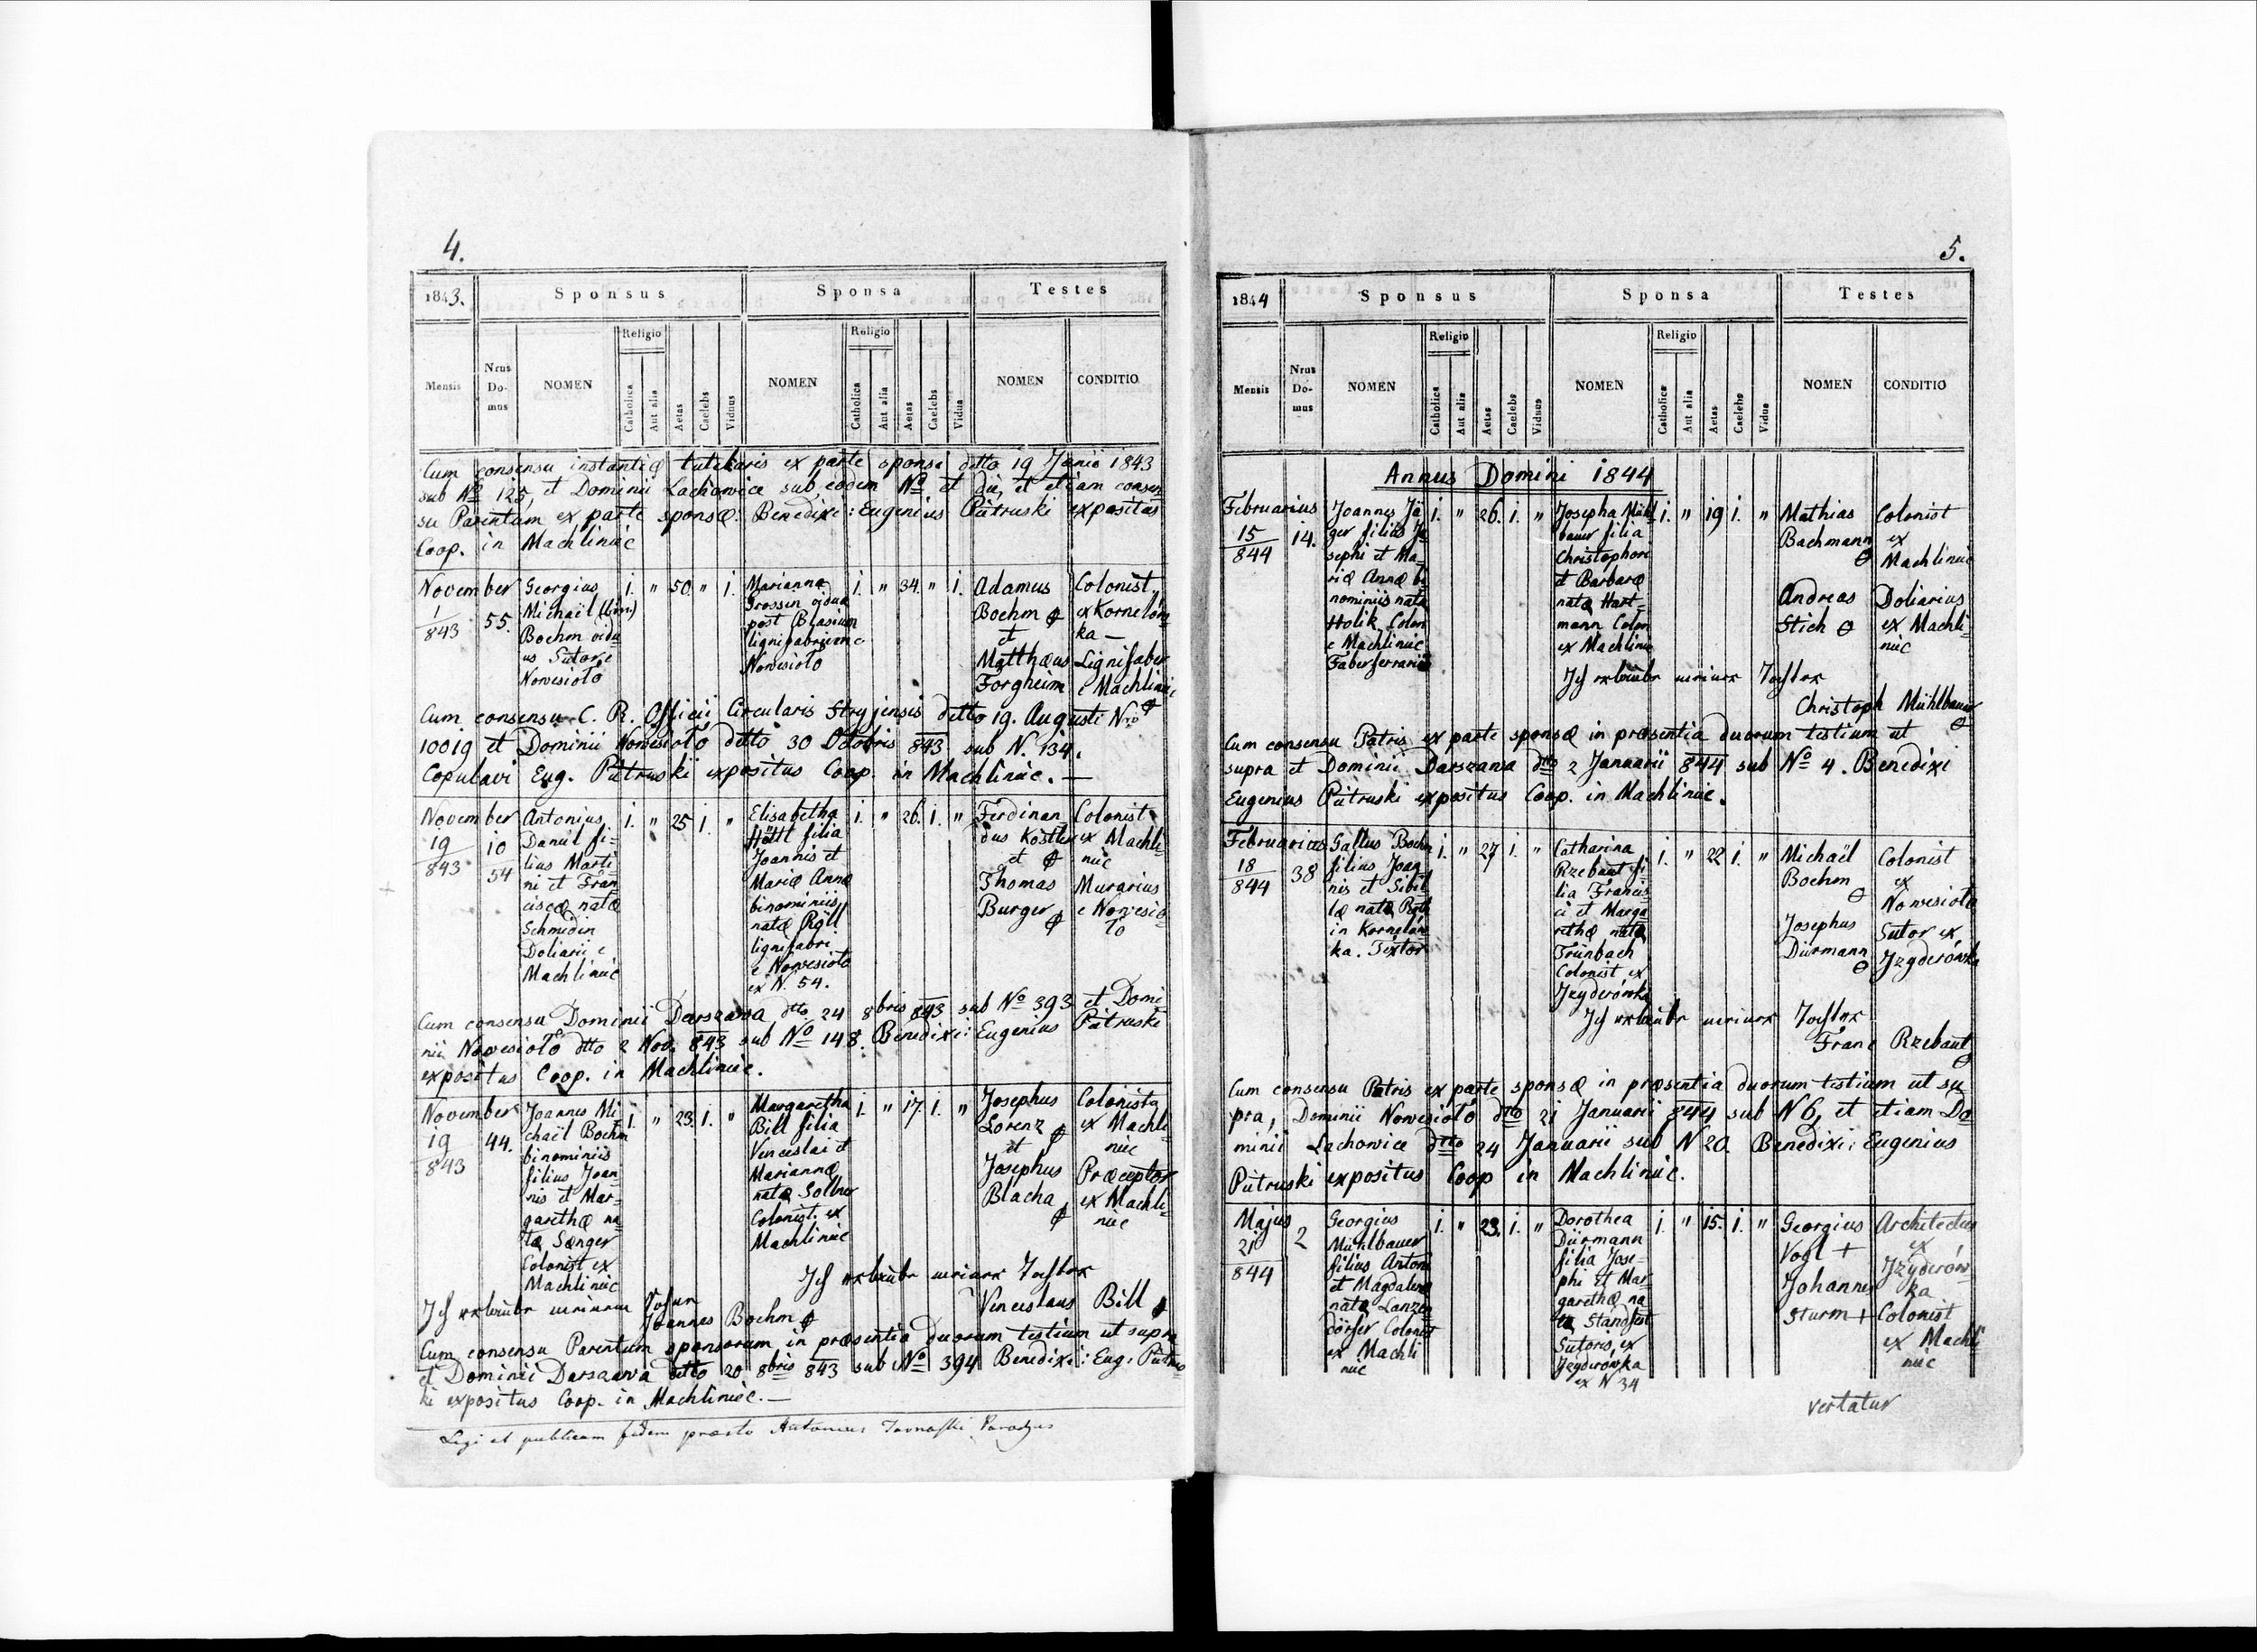 4.
1843. Sponsus Sponsa Testes
Mensis Nrus Domus NOMEN Religio Catholica Aut alia Aetas Caelebs Viduus NOMEN Religio Catholica Aut alia Aetas Caelebs Vidua NOMEN CONDITIO
Cum consensu instantiæ tutelaris ex parte sponsi ddto 19 Junii 1843
sub No 125, et Dominii Lachowice sub eodem No et die, et etiam consen
su Parentum ex parte sponsæ. Benedixi: Eugenius Pietruski expositus
Coop. in Machliniec
November
1
843
55.
Georgius
Michaël (bin.)
Boehm vidu
us Sutor e
Nowesioło
1. " 50. " 1.
Marianna
Grossin vidua
post Blasium
lignifabrum e
Nowesioło
1. " 34. " 1.
Adamus
Boehm
et
Matthæus
Forgheim
Colonist.
ex Kornelów
ka —
Lignifaber
e Machliniec
Cum consensu C. R. Officii Circularis Stryjensis ddto 19. Augusti Nro
10019 et Dominii Nowesioło ddto 30 Octobris 843 sub N. 134.
Copulavi Eug. Pietruski expositus Coop. in Machliniec. —
November
19
843
10
54
Antonius
Danul fi=
lius Marti
ni et Fran
ciscæ natæ
Schmidin
Doliarii e
Machliniec
1. " 25 1. "
Elisabetha
Höttl filia
Joannis et
Mariæ Annæ
binominiis
natæ Röll
lignifabri
e Nowesioło
ex N. 54.
1. " 26. 1. "
Ferdinan
dus Köstler
et
Thomas
Burger
Colonist
ex Machli=
niec
Murarius
e Nowesio
ło
Cum consensu Dominii Darszawa dtto 24 8bris 843 sub No 393 et Domi
nii Nowesioło dtto 2 Nov. 843 sub No 148. Benedixi: Eugenius Pietruski
expositus Coop. in Machliniec.
November
19
843
44.
Joannes Mi
chaël Boehm
binominiis
filius Joan
nis et Mar=
garethæ na
tæ Sænger
Colonist ex
Machliniec
1. " 23. 1. "
Margaretha
Bill filia
Venceslai et
Mariannæ
natæ
Colonist. ex
Machliniec
1. " 17. 1. "
Josephus
Lorenz
et
Josephus
Blacha
Colonista
ex Machli=
niec
Præceptor
ex Machli=
niec
Ich erlaube meiner Tochter
Venceslaus Bill
Ich erlaube meinem Sohne
Joannes Boehm
Cum consensu Parentum sponsorum in præsentia duorum testium ut supra
et Dominii Darszawa ddto 20 8bris 843 sub No 394 Benedixi: Eug: Pietrus
ki expositus Coop. in Machliniec. —
Legi et publicam fidem præsto Antonius
5.
1844 Sponsus Sponsa Testes
Mensis Nrus Domus NOMEN Religio Catholica Aut alia Aetas Caelebs Viduus NOMEN Religio Catholica Aut alia Aetas Caelebs Vidua NOMEN CONDITIO
Annus Domini 1844
Februarius
15
844
14.
Joannes Jä
ger filius Jo
sephi et Ma=
riæ Annæ bi
nominiis natæ
Holik Colon
e Machliniec
Faber ferrarius
1. " 26. 1. "
Josepha Mühl
bauer filia
Christophori
et Barbaræ
natæ Hart=
mann Colon
ex Machliniec
1. " 19 1. "
Mathias
Bachmann
Andreas
Stich
Colonist
ex
Machliniec
Doliarius
ex Machli=
niec
Ich erlaube meiner Tochter
Christoph Mühlbauer
Cum consensu Patris ex parte sponsæ in præsentia duorum testium ut
supra et Dominii Darszawa dtto 2 Januarii 844 sub No 4. Benedixi
Eugenius Pietruski expositus Coop. in Machliniec.
Februarius
18
844
38
Gallus Boehm
filius Joan
nis et Sibil
læ natæ Roth
in Kornelów
ka. Textor
1. " 27 1. "
Catharina
Rzebaut fi=
lia Francis
ci et Marga
rethæ natæ
Trünbach
Colonist ex
Izyderówka
1. " 22 1. "
Michaël
Boehm
Josephus
Dürmann
Colonist
ex
Nowesioło
Sutor ex
Izyderówka
Ich erlaube meiner Tochter
Franc Rzebaut
Cum consensu Patris ex parte sponsæ in præsentia duorum testium ut su
pra, Dominii Nowesioło dtto 21 Januarii 844 sub N 6, et etiam Do
minii Lachowice dtto 24 Januarii sub N 20. Benedixi: Eugenius
Pietruski expositus Coop in Machliniec.
Majus
21
844
2
Georgius
Mühlbauer
filius Antoni
et Magdalenæ
natæ Lanzen
dörfer Colonist
ex Machli
niec
1. " 23. 1. "
Dorothea
Dürmann
filia Jose=
phi et Mar
garethæ na
tæ Standfest
Sutoris ex
Izyderówka
ex N 34
1. " 15. 1. "
Georgius
Vogl +
Johannes
Sturm +
Architectus
ex
Izyderów=
ka
Colonist
ex Machli
niec
vertatur